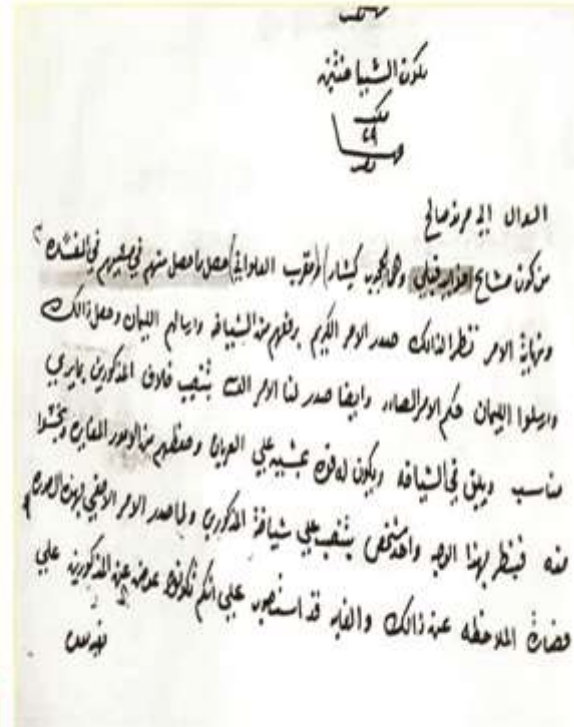 يكون الشياختين
٤٩
السوال إلى مرزه صالح
من كون مشايخ هزاير قبلي وهما محجوب كيشار) و(مقرب العلواني) حصل ما حصل منهم في سيرهم في الفتنه
ونهاية الامر نظرا لذالك صدر الامر الكريم برفتهم من الشياخه وارسالهم الليمان وحصل ذالك
وارسلوا الليمان حكم الامر الصادر وايضا صدر لنا الامر بتنصيب خلاف المذكورين بمايري
مناسب ويليق في الشياخه ويكون له قوه بمشيه علي العربان وحفظهم من الامور المغايره ويخشوا
منه فبنظر بهذا الوجه واحد شخص بتنصب علي شياخة المذكورين ولما صدر الامر بهذه الصوره
الملاحظه عن ذالك قد استصوب علي انكم تكونوا عوض عن المذكورين علي